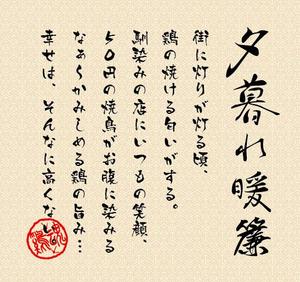 夕暮れ暖簾
街に灯りが灯る頃、
鶏の焼ける匂いがする。
馴染みの店にいつもの笑顔、
50円の焼鳥がお腹に染みる
なぁ〜かみしめる鶏の旨み…
幸せは、そんなに高くない